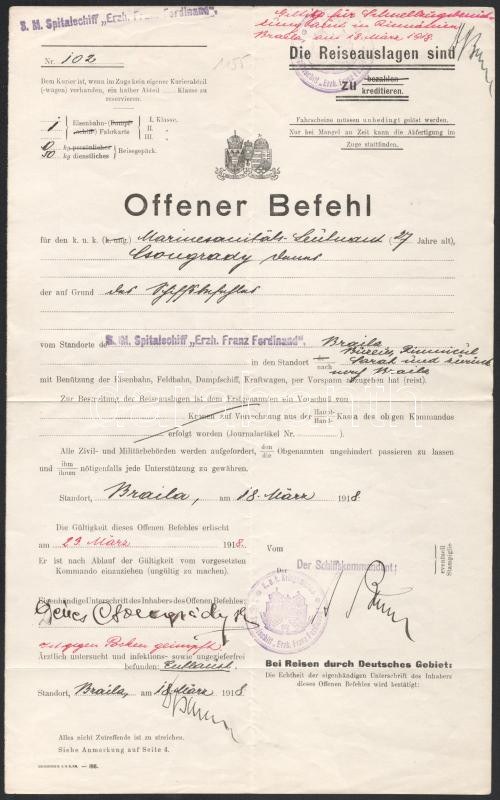 S. M. Spitalschiff „Erzh. Franz Ferdinand".
Gültig für Schnellzugsbenüt-
zung in Rumänien
Braila, am 18. März 1918.
Nr. 102
1155
Dem Kurier ist, wenn im Zuge kein eigener Kurierabteil
(-wagen) vorhanden, ein halber Abteil Klasse zu
reservieren.
Die Reiseauslagen sind
zu bezahlen
kreditieren.
1 Eisenbahn- (Dampf-
schiff) Fahrkarte
I. Klasse.
II. "
III. "
10 kg persönliches
50 kg dienstliches
Reisegepäck.
Fahrscheine müssen unbedingt gelöst werden.
Nur bei Mangel an Zeit kann die Abfertigung im
Zuge stattfinden.
Offener Befehl
für den k. u. k. (k. ung.) Marinesanitäts-Leutnant (27 Jahre alt),
Csongrady Denes
der auf Grund des Schiffsbefehles
vom Standorte des S. M. Spitalschiff „Erzh. Franz Ferdinand". Braila
in den Standort in
nach
Sarat und zurück
nach Braila
mit Benützung der Eisenbahn, Feldbahn, Dampfschiff, Kraftwagen, per Vorspann abzugehen hat (reist).
Zur Bestreitung der Reiseauslagen ist dem Erstgenannten ein Vorschuß von
Kronen auf Verrechnung aus der Haupt-
Hand- Kassa des obigen Kommandos
erfolgt worden (Journalartikel Nr. ).
Alle Zivil- und Militärbehörden werden aufgefordert, den
die Obgenannten ungehindert passieren zu lassen
und ihm
ihnen nötigenfalls jede Unterstützung zu gewähren.
Standort, Braila, am 18. März 1918.
Die Gültigkeit dieses Offenen Befehles erlischt
am 23. März 1918.
Vom
Er ist nach Ablauf der Gültigkeit vom vorgesetzten
Kommando einzuziehen (ungültig zu machen).
Der Der Schiffskommandant:
eventuell
Stampiglie
Eigenhändige Unterschrift des Inhabers des Offenen Befehles:
Dénes Csongrády
ist gegen Pocken geimpft.
Ärztlich untersucht und infektions- sowie ungezieferfrei
befunden:
Standort, Braila, am 18. März 1918
Bei Reisen durch Deutsches Gebiet:
Die Echtheit der eigenhändigen Unterschrift des Inhabers
dieses Offenen Befehles wird bestätigt:
Alles nicht Zutreffende ist zu streichen.
Siehe Anmerkung auf Seite 4.